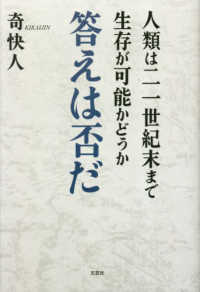 人類は二一世紀末まで
生存が可能かどうか
答えは否だ
奇快人
KIKAIJIN
文芸社